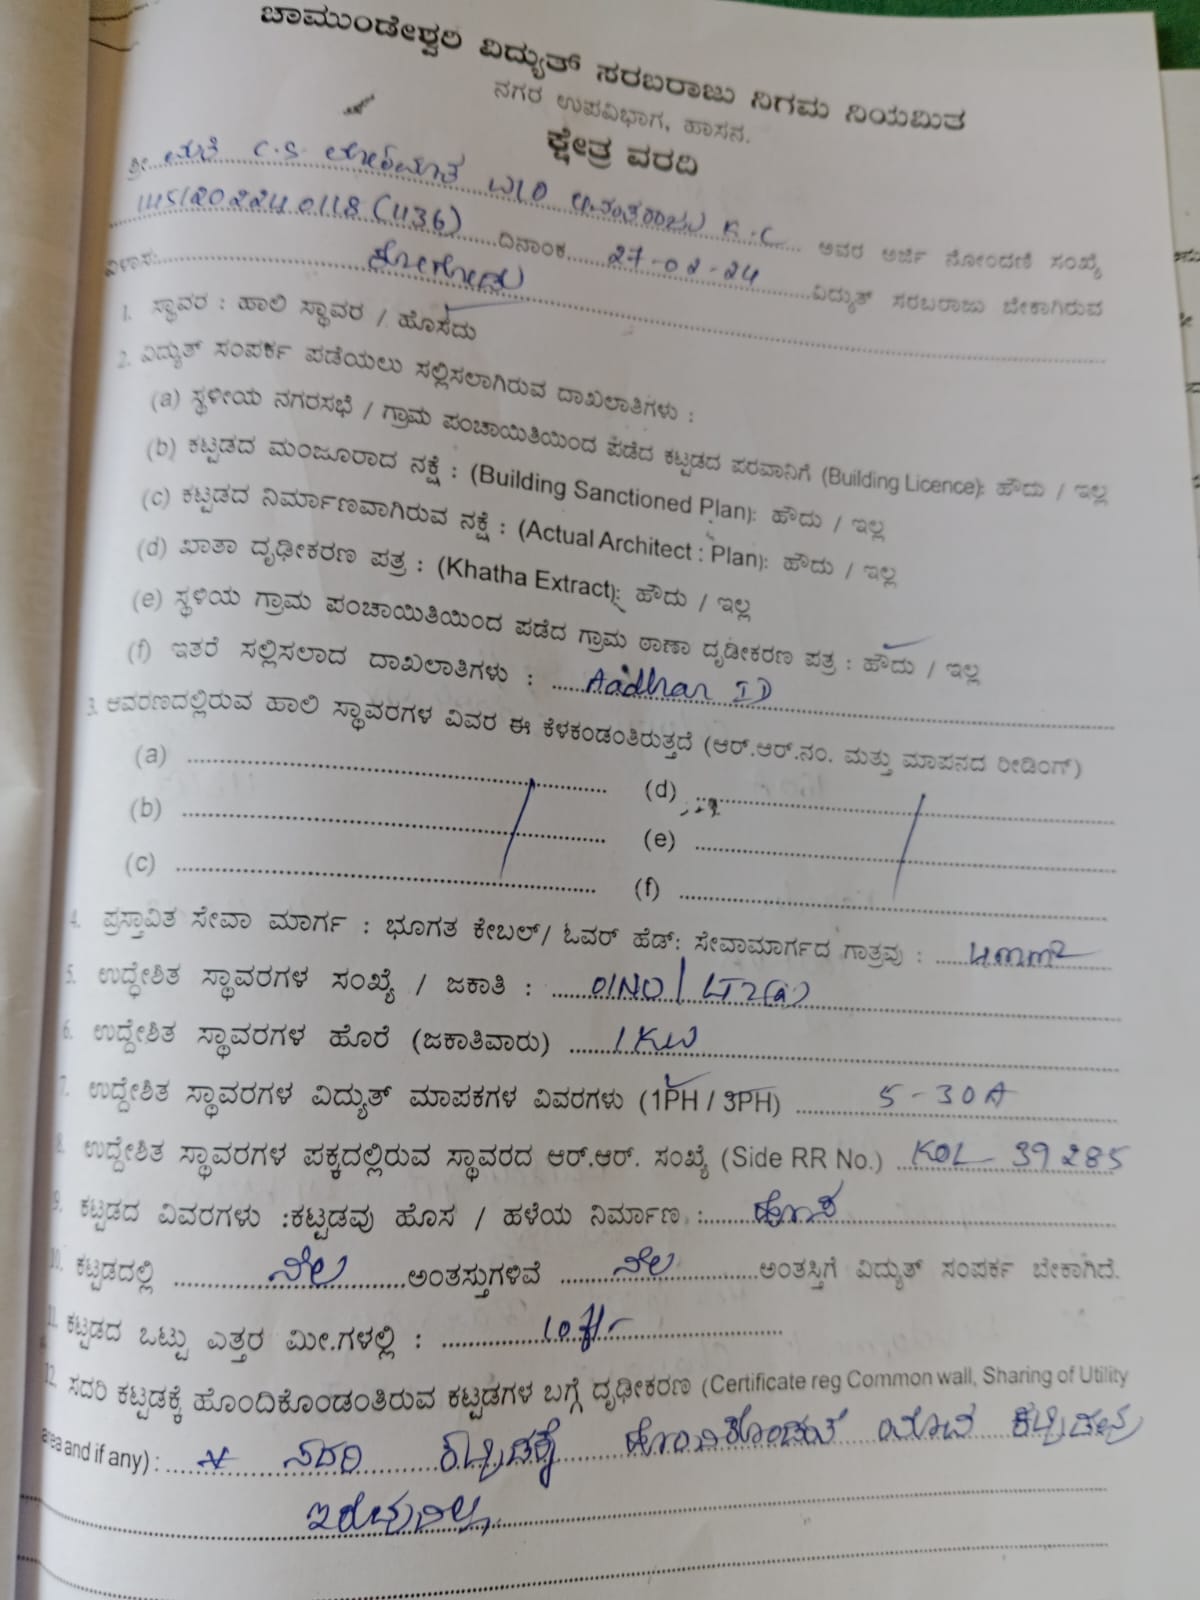 ಚಾಮುಂಡೇಶ್ವರಿ ವಿದ್ಯುತ್ ಸರಬರಾಜು ನಿಗಮ ನಿಯಮಿತ
ನಗರ ಉಪವಿಭಾಗ, ಹಾಸನ.
ಕ್ಷೇತ್ರ ವರದಿ
ಶ್ರೀ ಮತಿ C.S. ಲೋಕಮಾತ W/O ಅನಂತರಾಜು K.C ಅವರ ಅರ್ಜಿ ನೋಂದಣಿ ಸಂಖ್ಯೆ
20224 0118 (1136) ದಿನಾಂಕ 27-02-24 ವಿದ್ಯುತ್ ಸರಬರಾಜು ಬೇಕಾಗಿರುವ
ವಿಳಾಸ:
1. ಸ್ಥಾವರ : ಹಾಲಿ ಸ್ಥಾವರ / ಹೊಸದು
2. ವಿದ್ಯುತ್ ಸಂಪರ್ಕ ಪಡೆಯಲು ಸಲ್ಲಿಸಲಾಗಿರುವ ದಾಖಲಾತಿಗಳು :
(a) ಸ್ಥಳೀಯ ನಗರಸಭೆ / ಗ್ರಾಮ ಪಂಚಾಯಿತಿಯಿಂದ ಪಡೆದ ಕಟ್ಟಡದ ಪರವಾನಿಗೆ (Building Licence): ಹೌದು / ಇಲ್ಲ
(b) ಕಟ್ಟಡದ ಮಂಜೂರಾದ ನಕ್ಷೆ : (Building Sanctioned Plan): ಹೌದು / ಇಲ್ಲ
(c) ಕಟ್ಟಡದ ನಿರ್ಮಾಣವಾಗಿರುವ ನಕ್ಷೆ : (Actual Architect : Plan): ಹೌದು / ಇಲ್ಲ
(d) ಖಾತಾ ದೃಢೀಕರಣ ಪತ್ರ : (Khatha Extract): ಹೌದು / ಇಲ್ಲ
(e) ಸ್ಥಳಿಯ ಗ್ರಾಮ ಪಂಚಾಯಿತಿಯಿಂದ ಪಡೆದ ಗ್ರಾಮ ಠಾಣಾ ದೃಢೀಕರಣ ಪತ್ರ : ಹೌದು / ಇಲ್ಲ
(f) ಇತರೆ ಸಲ್ಲಿಸಲಾದ ದಾಖಲಾತಿಗಳು : Aadhar ID
3. ಆವರಣದಲ್ಲಿರುವ ಹಾಲಿ ಸ್ಥಾವರಗಳ ವಿವರ ಈ ಕೆಳಕಂಡಂತಿರುತ್ತದೆ (ಆರ್.ಆರ್.ನಂ. ಮತ್ತು ಮಾಪನದ ರೀಡಿಂಗ್)
(a) (d)
(b) (e)
(c) (f)
4. ಪ್ರಸ್ತಾವಿತ ಸೇವಾ ಮಾರ್ಗ : ಭೂಗತ ಕೇಬಲ್/ ಓವರ್ ಹೆಡ್: ಸೇವಾಮಾರ್ಗದ ಗಾತ್ರವು : 4mm2
5. ಉದ್ಧೇಶಿತ ಸ್ಥಾವರಗಳ ಸಂಖ್ಯೆ / ಜಕಾತಿ : 01NO / LT2(a)
6. ಉದ್ದೇಶಿತ ಸ್ಥಾವರಗಳ ಹೊರೆ (ಜಕಾತಿವಾರು) 1KW
7. ಉದ್ದೇಶಿತ ಸ್ಥಾವರಗಳ ವಿದ್ಯುತ್ ಮಾಪಕಗಳ ವಿವರಗಳು (1PH / 3PH) 5-30A
8. ಉದ್ದೇಶಿತ ಸ್ಥಾವರಗಳ ಪಕ್ಕದಲ್ಲಿರುವ ಸ್ಥಾವರದ ಆರ್.ಆರ್. ಸಂಖ್ಯೆ (Side RR No.) KOL 39285
9. ಕಟ್ಟಡದ ವಿವರಗಳು :ಕಟ್ಟಡವು ಹೊಸ / ಹಳೆಯ ನಿರ್ಮಾಣ : ಹೊಸ
10. ಕಟ್ಟಡದಲ್ಲಿ ನೆಲ ಅಂತಸ್ತುಗಳಿವೆ ನೆಲ ಅಂತಸ್ತಿಗೆ ವಿದ್ಯುತ್ ಸಂಪರ್ಕ ಬೇಕಾಗಿದೆ.
11. ಕಟ್ಟಡದ ಒಟ್ಟು ಎತ್ತರ ಮೀ.ಗಳಲ್ಲಿ : 10
12. ಸದರಿ ಕಟ್ಟಡಕ್ಕೆ ಹೊಂದಿಕೊಂಡಂತಿರುವ ಕಟ್ಟಡಗಳ ಬಗ್ಗೆ ದೃಢೀಕರಣ (Certificate reg Common wall, Sharing of Utility
area and if any) : ಸದರಿ ಕಟ್ಟಡಕ್ಕೆ ಹೊಂದಿಕೊಂಡಂತೆ ಯಾವ ಕಟ್ಟಡವು
ಇರುವುದಿಲ್ಲ.